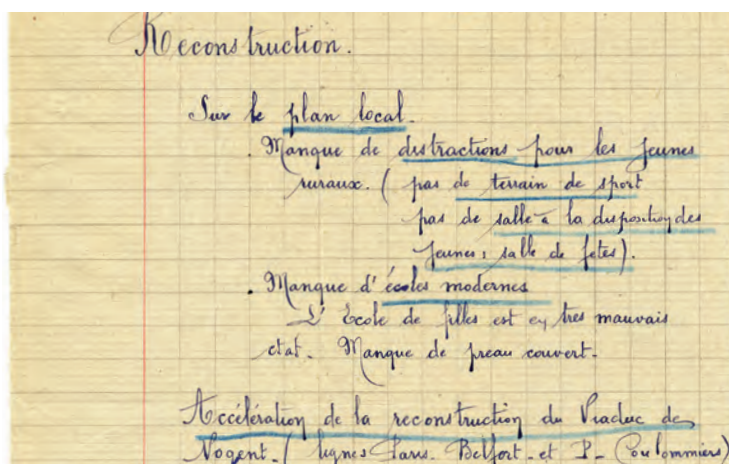 Reconstruction.
Sur le plan local.
. Manque de distractions pour les jeunes
ruraux. ( pas de terrain de sport
pas de salle à la disposition des
jeunes : salle de fetes).
. Manque d'écoles modernes
L'Ecole de filles est en tres mauvais
etat. Manque de preau couvert.
Accélération de la reconstruction du Viaduc de
Nogent. ( lignes Paris. Belfort. et P. Coulommiers)